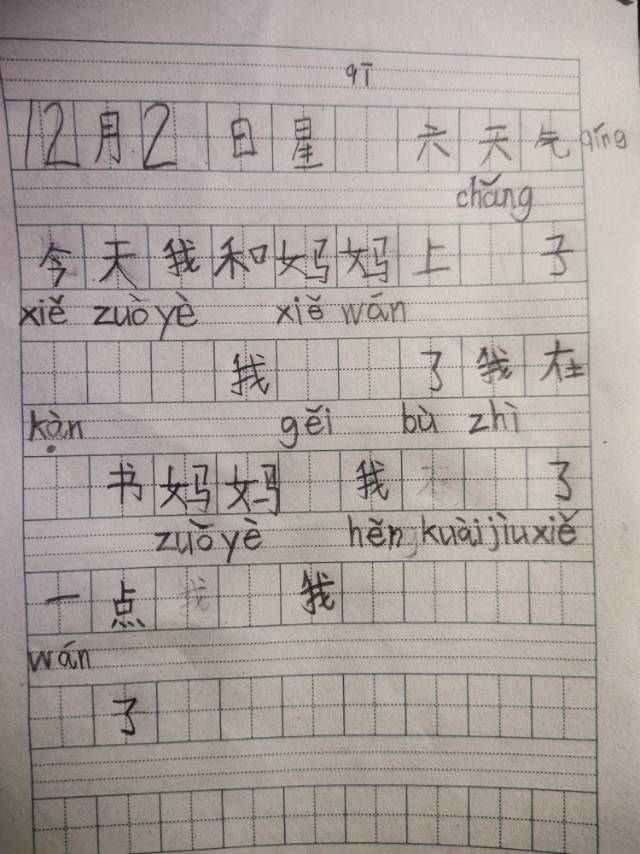 qī
12月2日星 六天气 qíng
chǎng
今天我和妈妈上 了
xiě zuò yè xiě wán
我 了我在
kàn gěi bù zhì
书妈妈 我 了
zuǒ yè hěn kuài jiù xiě
一点 我 我
wán
了